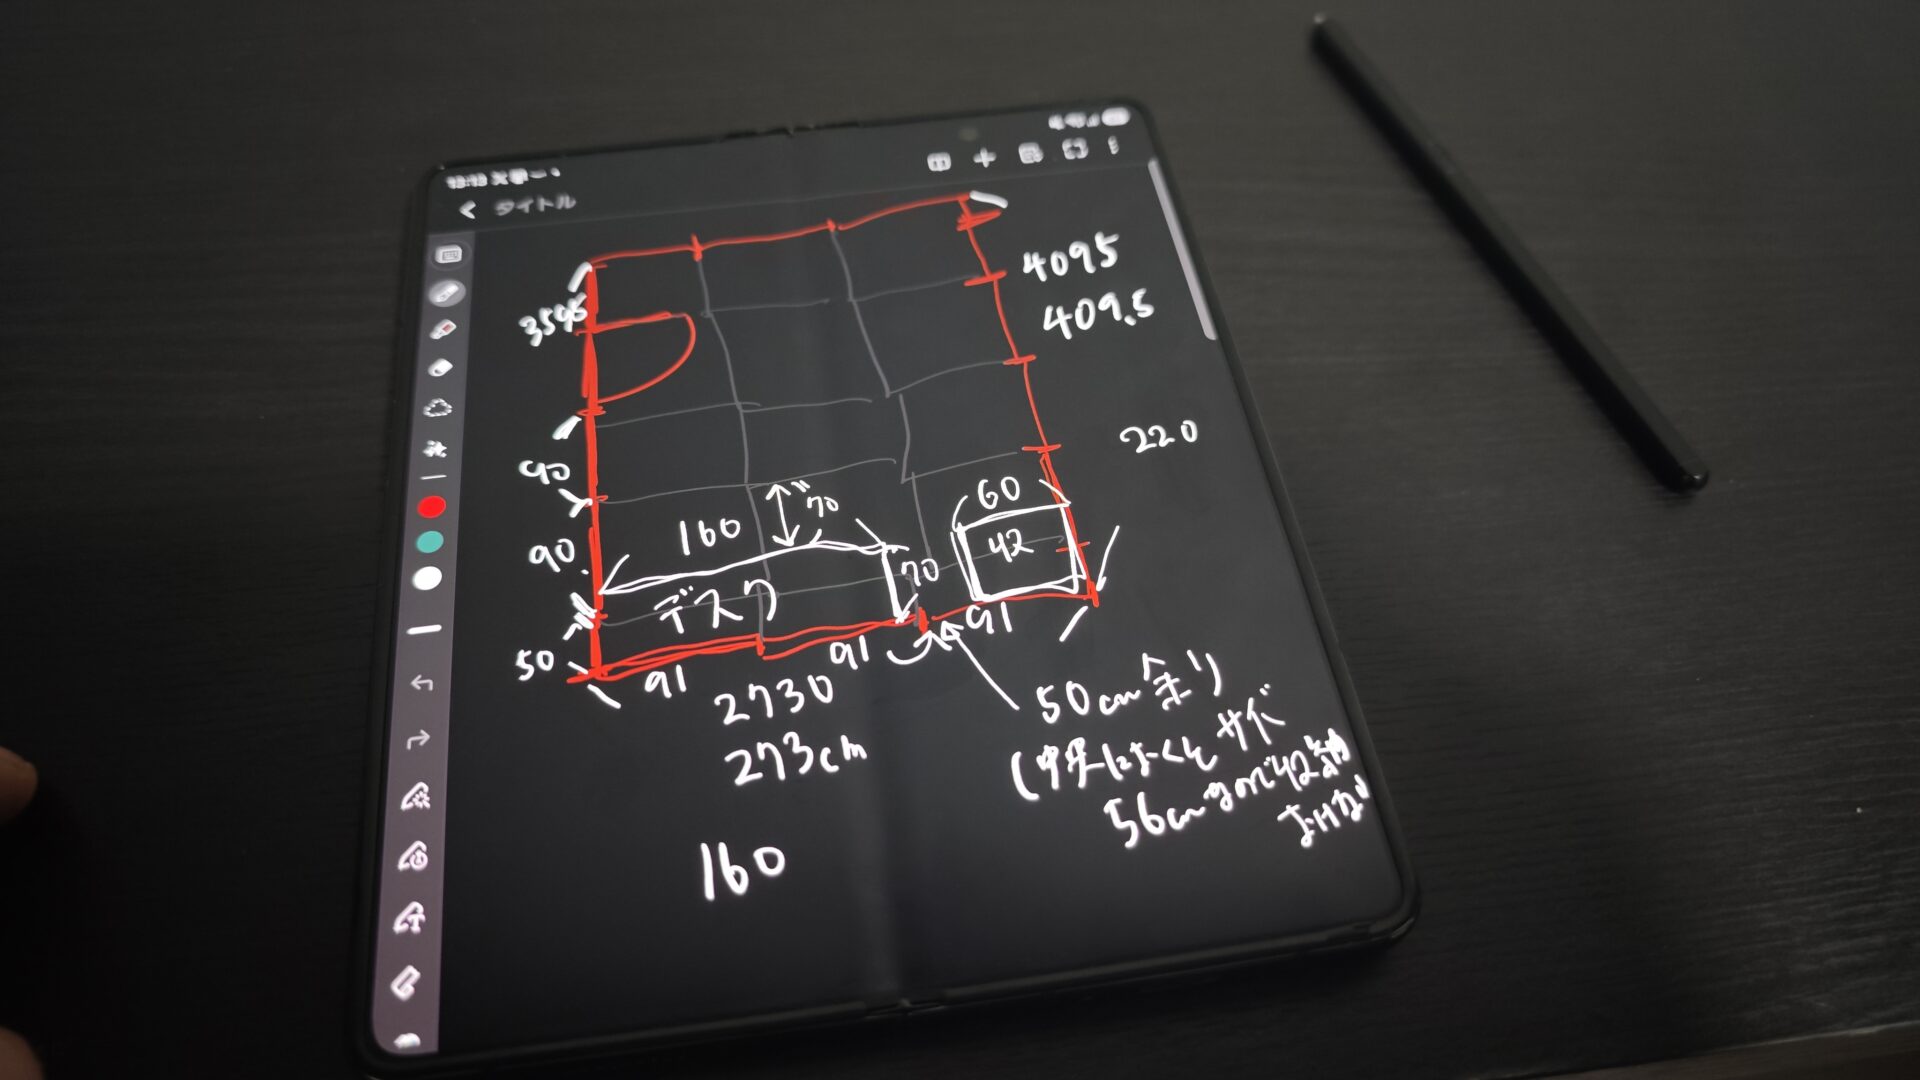 タイトル
4095
409.5
3595
220
90
60
70
160
42
90
70
デスク
50
91
91
91
2730
273cm
50cm余り
(中央におくと サイド
56cmなので42
160